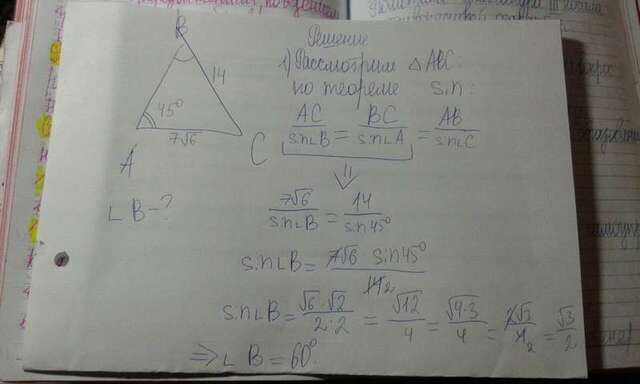 B
14
45°
7√6
A
C
∟B-?
Решение
1) Рассмотрим △ABC:
по теореме sin:
AC/sin∟B = BC/sin∟A = AB/sin∟C
⇓
7√6/sin∟B = 14/sin45°
sin∟B = 7√6 · sin45°/14 2
sin∟B = √6·√2/2·2 = √12/4 = √4·3/4 = 2√3/4 2 = √3/2
⇒ ∟B = 60°